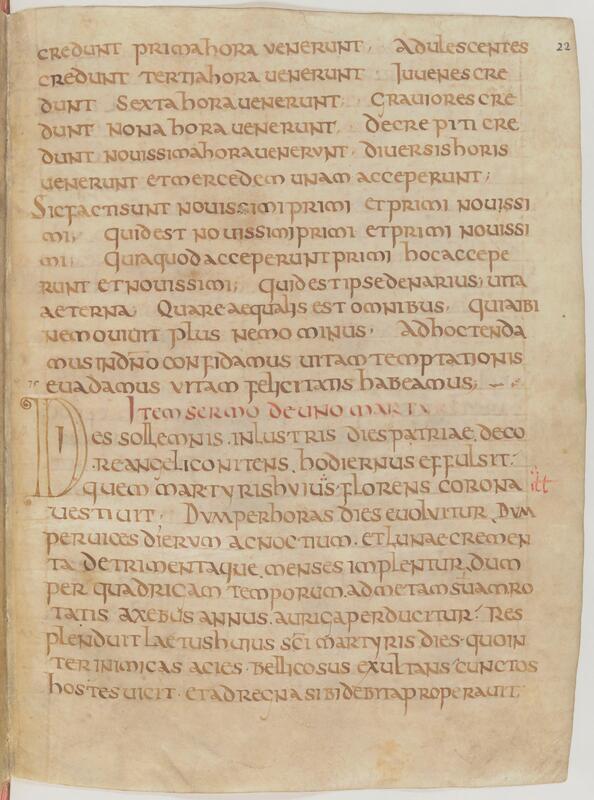 credunt prima hora venerunt, Adulescentes
22
credunt tertia hora uenerunt Iuuenes cre
dunt Sexta hora uenerunt; Grauiores cre
dunt nona hora uenerunt. Decrepiti cre
dunt nouissima hora uenervnt. diuersis horis
uenerunt et mercedem unam acceperunt;
Sic facti sunt nouissimi primi et primi nouissi
mi; quid est nouissimi primi et primi nouissi
mi; Quia quod acceperunt primi hoc accepe
runt et nouissimi; quid est ipse denarius; uita
aeterna; Quare aequalis est omnibus; quia ibi
nemo uiuit plus nemo minus. Ad hoc tenda
mus in dno confidamus uitam temptationis
euadamus vitam felicitatis habeamus;
Item sermo de uno marty
Dies sollemnis. inlustris dies patriae. deco
re angelico nitens. hodiernus effulsit.
quem martyris huius florens corona
uestiuit; Dvm per horas dies euoluitur. Dvm
per uices diervm ac noctium. et lunae cremen
ta detrimentaque. menses implentur. dum
per quadrigam temporum. ad metam suam ro
tatis axebus annus. auriga perducitur. Res
plenduit laetus huius sci martyris dies. quoin
ter inimicas acies. bellicosus exultans cunctos
hostes uicit. et ad regna sibi debita properauit.